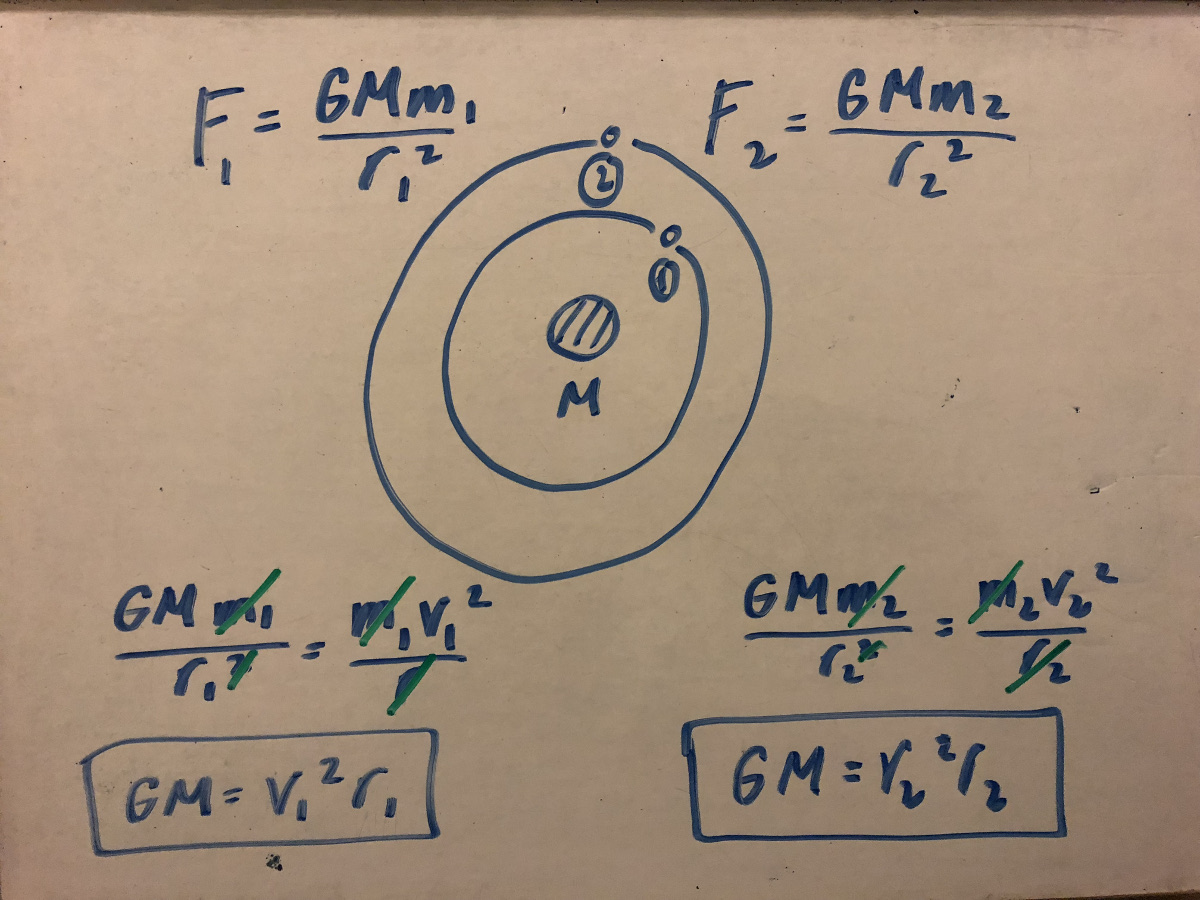 F₁ = GMm₁/r₁²
F₂ = GMm₂/r₂²
2
1
M
GMm₁/r₁² = m₁v₁²/r
GMm₂/r₂² = m₂v₂²/r₂
GM = v₁²r₁
GM = v₂²r₂